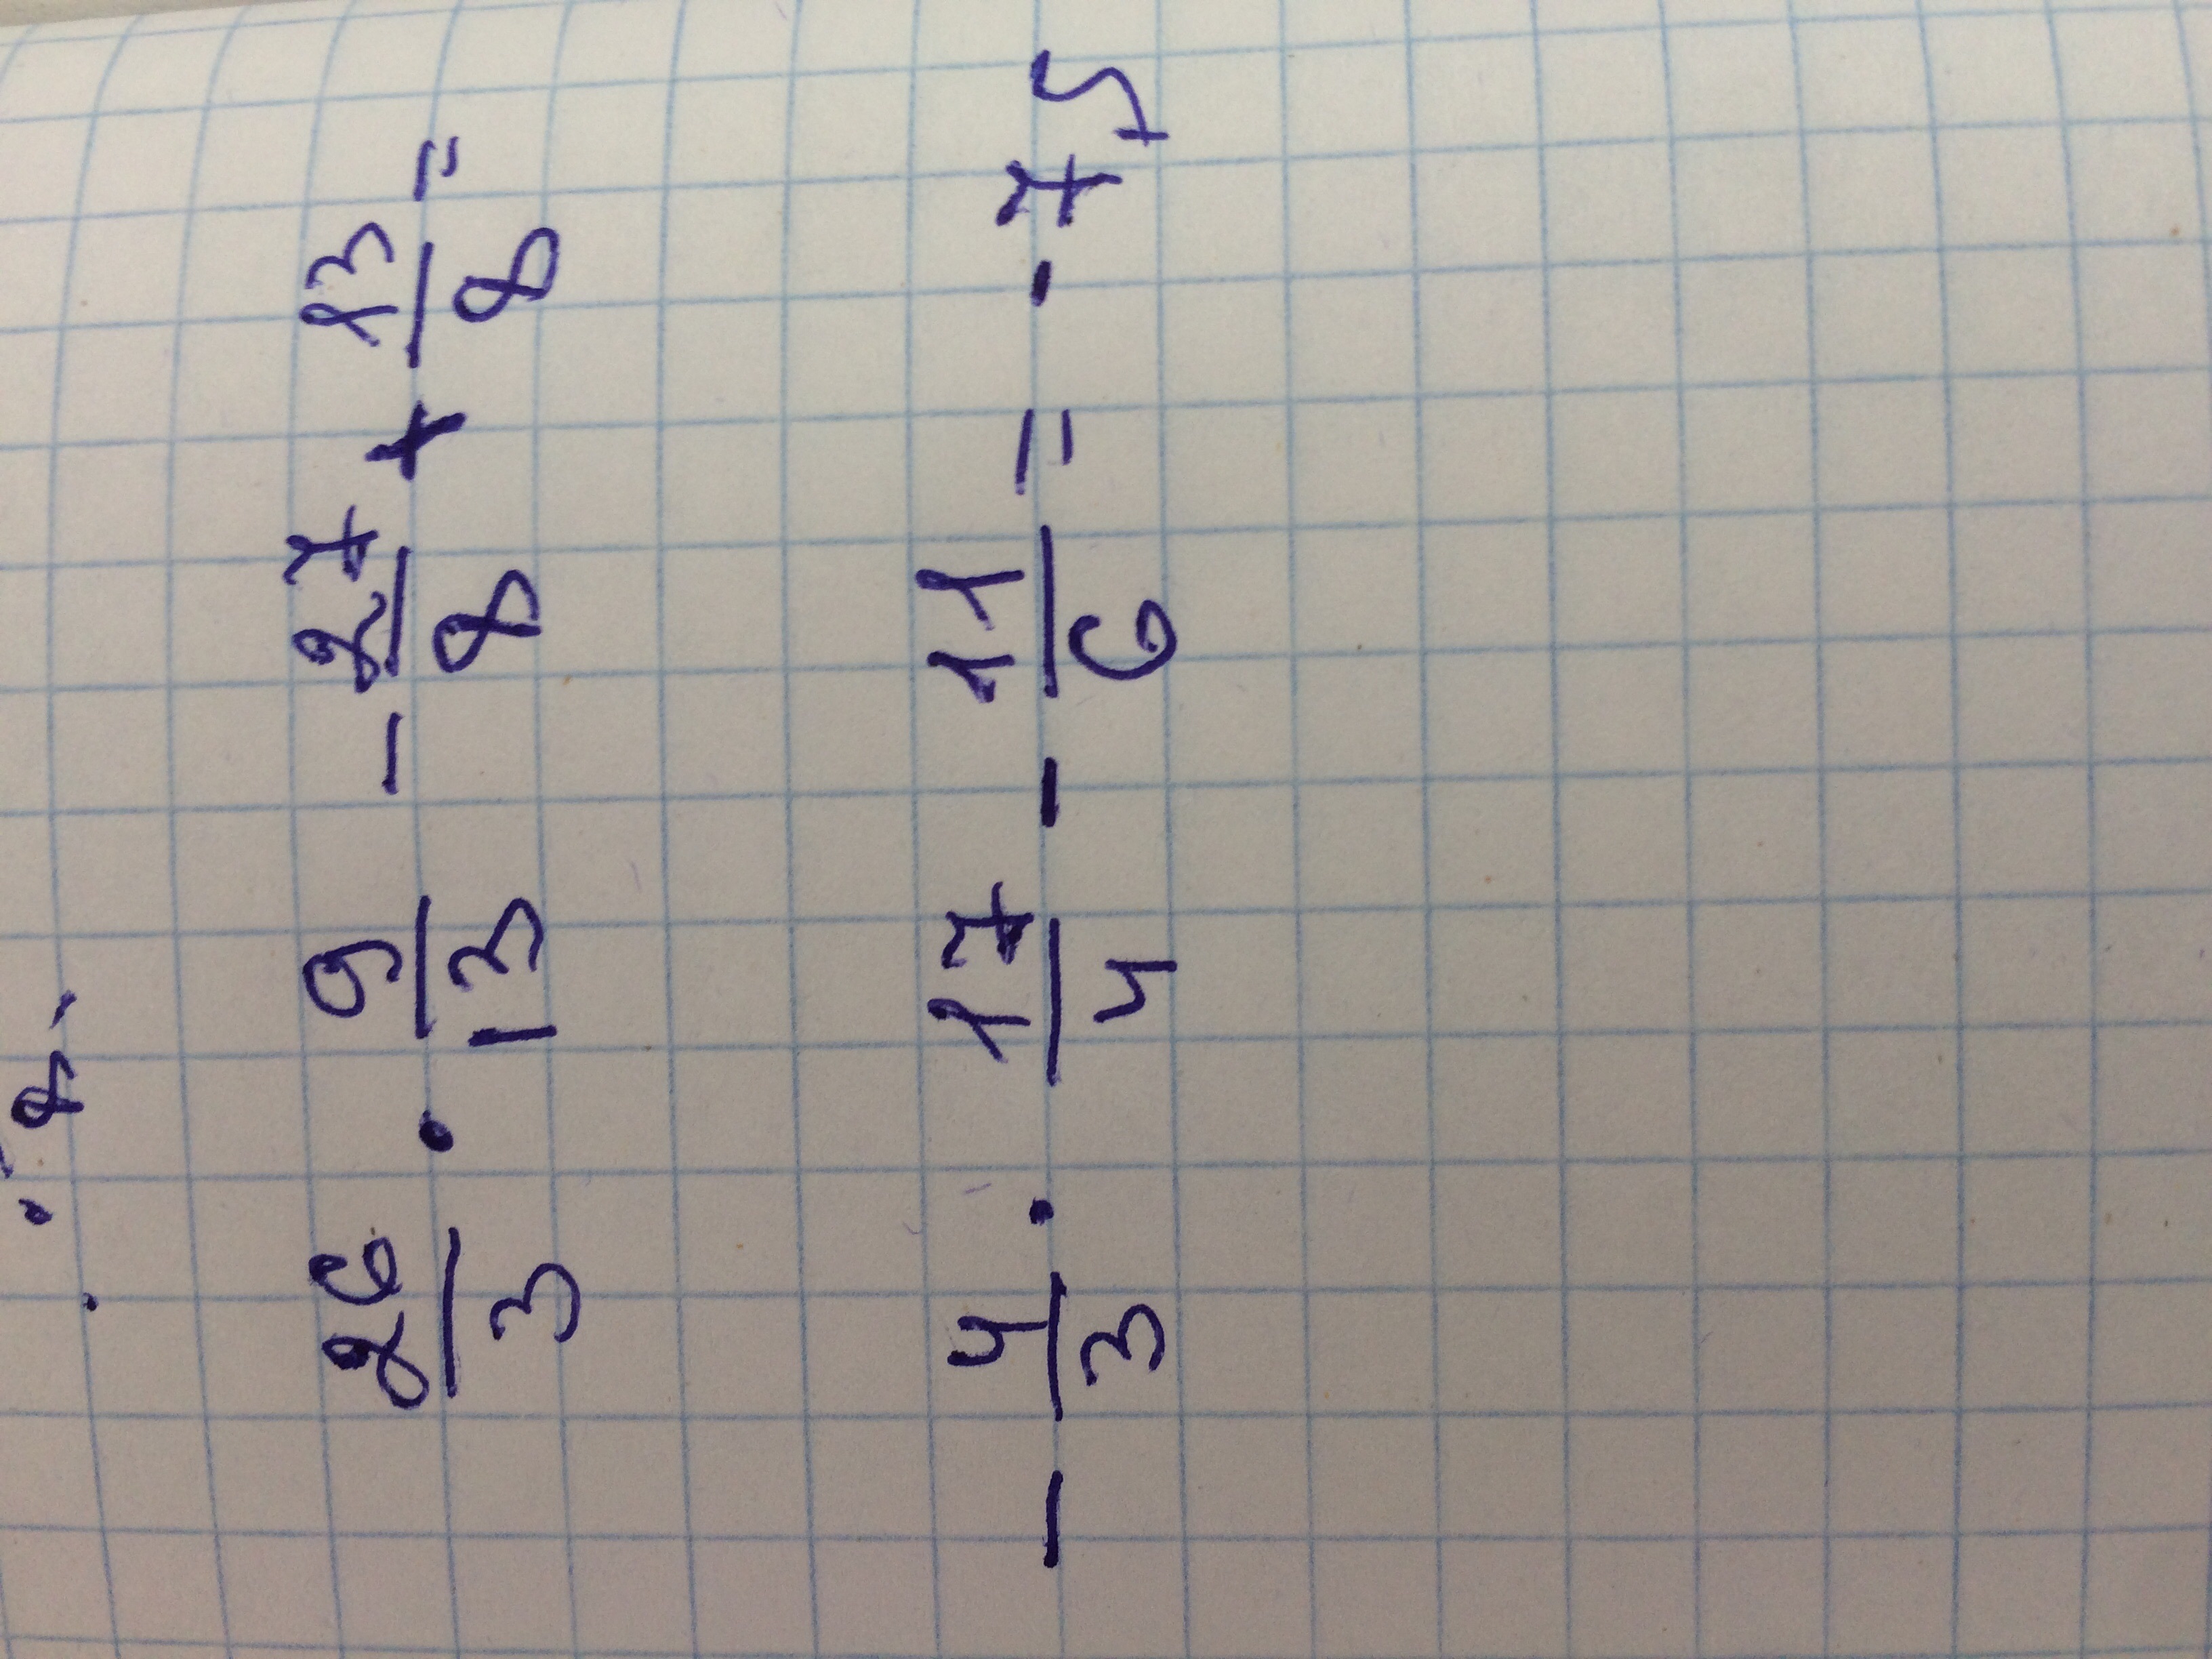 26/3 · 9/13 - 27/8 + 13/8 =
- 4/3 · 17/4 - 11/6 = - 7,5